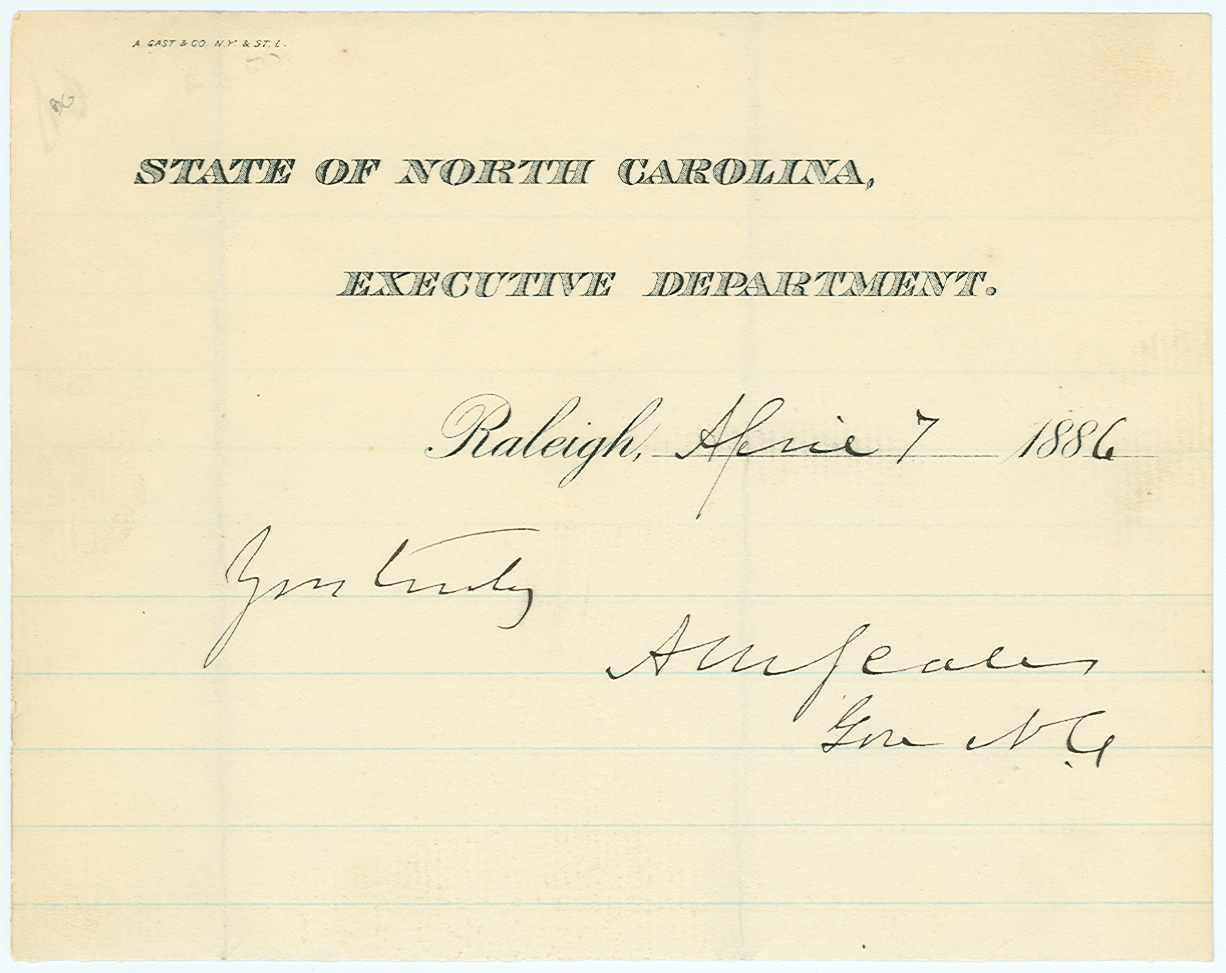 A. GAST & CO. N.Y. & ST. L.
STATE OF NORTH CAROLINA,
EXECUTIVE DEPARTMENT.
Raleigh, April 7 1886
Yours truly
A M Scales
Gov N.C.